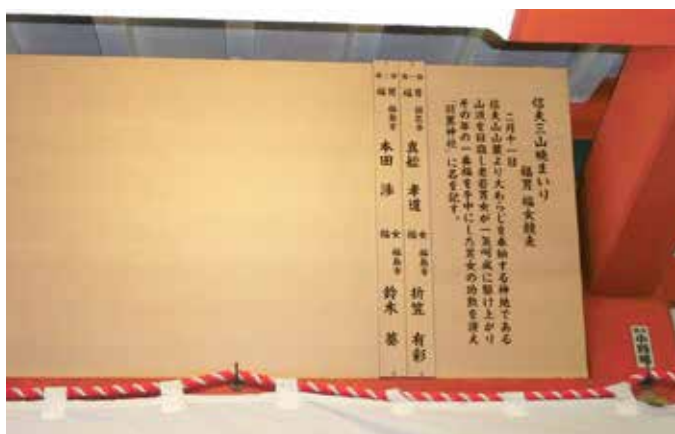 信夫三山暁まいり
福男 福女競走
二月十一日
信夫山山麓より大わらじを奉納する神地である
山頂を目指し老若男女が一気呵成に駆け上がり
その年の一番福を手中にした男女の功績を湛え
「羽黒神社」に名を記す。
福男 福島市 真船 孝道 福女 福島市 折笠 有彩
福男 福島市 本田 渉 福女 福島市 鈴木 葵